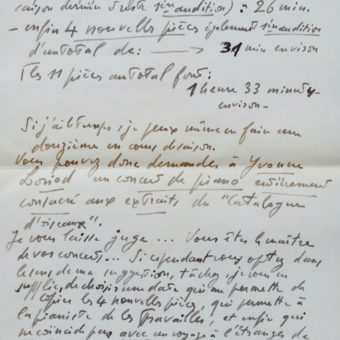 saison dernière 1 reste sin audition) : 26 min.
- enfin 4 nouvelles pièces également sin audition
d'un total de : → 31 min environ
Les 11 pièces au total font :
1 heure 33 minutes
environ -
Si j'ai le temps, je peux même en faire une
douzième en cours de saison.
Vous pouvez donc demander à Yvonne
Loriod un concert de piano entièrement
consacré aux extraits du "Catalogue
d'oiseaux".
Je vous laisse juge ... Vous êtes le maître
de vos concerts... Si cependant vous optez dans
le sens de ma suggestion, tâchez, je vous en
supplie, de choisir une date qui me permette de
copier les 4 nouvelles pièces, qui permette à
la pianiste de les travailler, et enfin qui
ne coïncide pas avec un voyage à l'étranger de